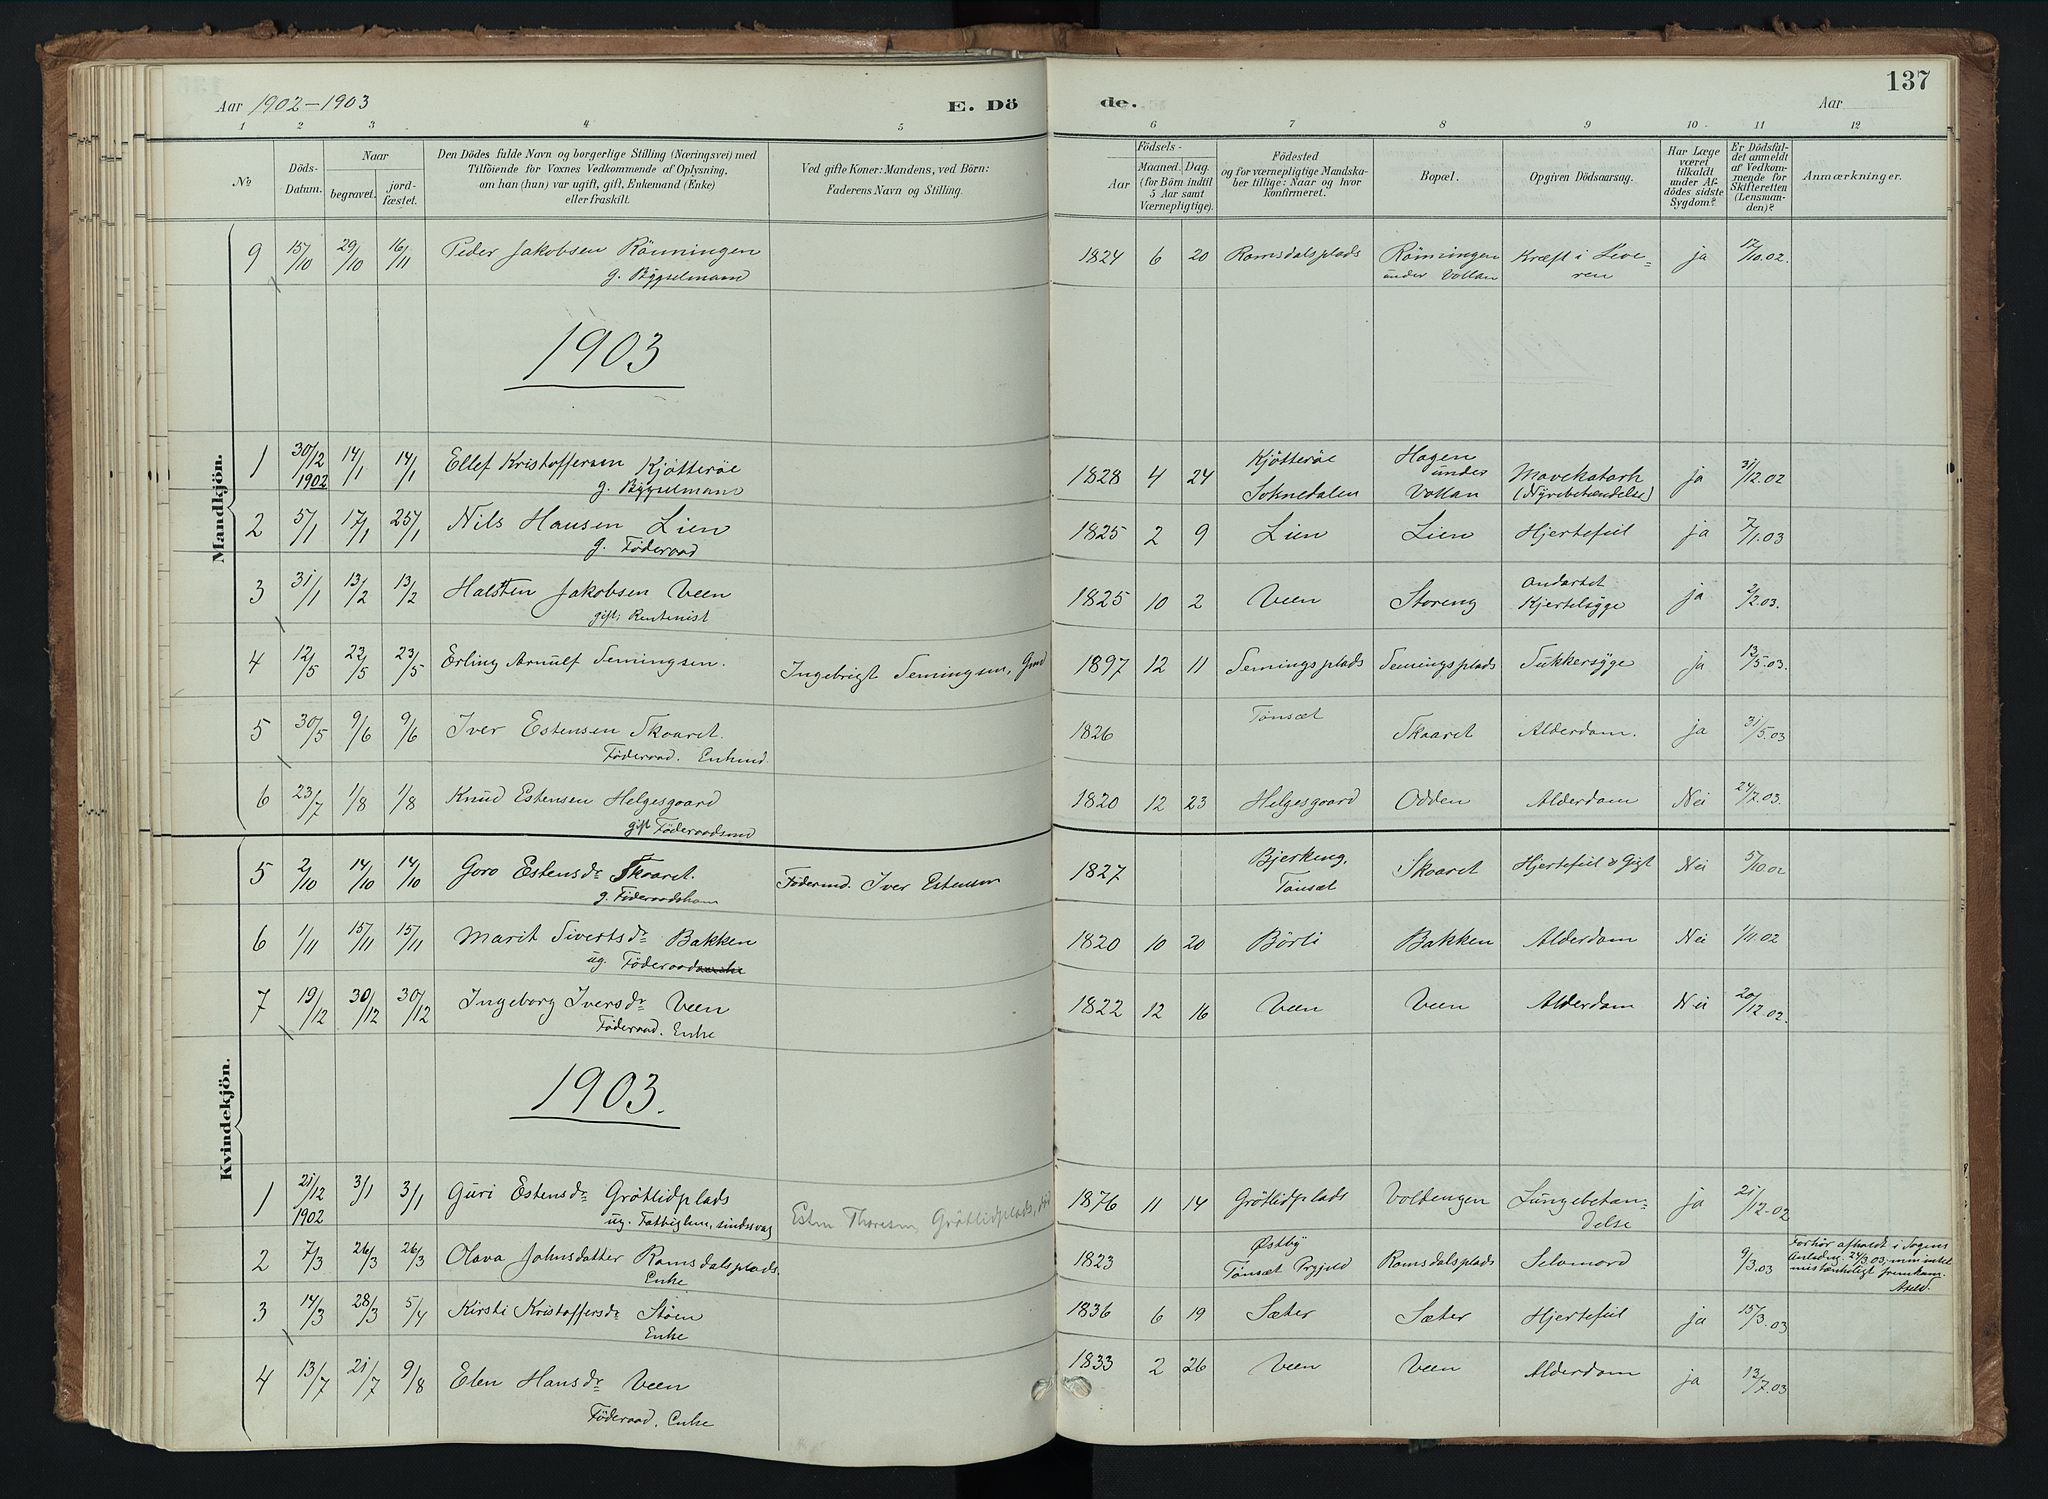 Aar 1902-1903 E. Dö
de. Aar 137
1 2 3 4 5 6 7 8 9 10 11 12
No
Döds-Datum.
Naar
begravet. jord-fæstet.
Den Dödes fulde Navn og borgerlige Stilling (Næringsvei) med
Tilföiende for Voxnes Vedkommende af Oplysning,
om han (hun) var ugift, gift, Enkemand (Enke)
eller fraskilt.
Ved gifte Koner: Mandens, ved Börn:
Faderens Navn og Stilling.
Födsels-
Aar Maaned. Dag.
(for Börn indtil
5 Aar samt
Værnepligtige).
Födested
og for værnepligtige Mandska-
ber tillige: Naar og hvor
konfirmeret.
Bopæl.
Opgiven Dödsaarsag.
Har Læge
været
tilkaldt
under Af-
dödes sidste
Sygdom?
Er Dödsfal-
det anmeldt
af Vedkom-
mende for
Skifteretten
(Lensman-
den)?
Anmærkninger.
Mandkjön.
9 15/10 29/10 16/11 Peder Jakobsen Rönningen 1824 6 20 Ramsdalsplads Rönningen Kræft i Leve- ja 17/10.02.
g. Bygselmand under Vollan ren
1903
1 30/12 14/1 14/1 Ellef Kristoffersen Kjötteröe 1828 4 24 Kjötteröe Hagen Mavekatarh ja 31/12.02
1902 g. Bygselmand Soknedalen under Vollan (Nyrebetændelse)
2 5/1 17/1 25/1 Nils Hansen Lien 1825 2 9 Lien Lien Hjertefeil ja 7/1.03
g. Föderaad
3 31/1 13/2 13/2 Halsten Jakobsen Veen 1825 10 2 Veen Storeng ondartet ja 2/2.03.
gift; Rentenist Kjertelsyge
4 12/5 22/5 23/5 Erling Arnulf Semingsen. Ingebrigt Semingsen, 1897 12 11 Semingsplads Semingsplads Sukkersyge ja 13/5.03.
5 30/5 9/6 9/6 Iver Estensen Skoaret. 1826 Tönsæt Skoaret Alderdom. ja 31/5.03
Föderaad. Enkmd.
6 23/7 1/8 1/8 Knud Estensen Helgesgaard 1820 12 23 Helgesgaard Odden Alderdom Nei 24/7.03.
gift Föderaadsmd
Kvindekjön.
5 2/10 14/10 14/10 Goro Estensdr Skoaret. Födermd. Iver Estensen 1827 Bjerkeng, Skoaret Hjertefeil & Gigt Nei 5/10.02
g. Föderaadskone Tönsæt
6 1/11 15/11 15/11 Marit Sivertsdr Bakken 1820 10 20 Börli Bakken Alderdom Nei 1/11.02
ug. Föderaad
7 19/12 30/12 30/12 Ingeborg Iversdr Veen 1822 12 16 Veen Veen Alderdom Nei 20/12.02.
Föderaad. Enke
1903.
1 21/12 3/1 3/1 Guri Estensdr Grötlidplads Esten Thoresen, Grötlidplads, 1876 11 14 Grötlidplads Voldengen Lungebetæn- ja 21/12-02
1902 ug. Fattiglem, sindssvag delse
2 7/3 26/3 26/3 Olava Johnsdatter Ramsdalsplads. 1823 Østby Ramsdalsplads Selvmord 9/3.03 Forhör afholdt i Sagens
Enke Tönsæt Prgjeld Anledng. 24/3.03; men intet
mistænkeligt fremkom.
3 14/3 28/3 5/4 Kirsti Kristoffersdr Stöen 1836 6 19 Sæter Sæter Hjertefeil ja 15/3.03
Enke
4 13/7 21/7 9/8 Elen Hansdr Veen 1833 2 26 Veen Veen Alderdom ja 13/7.03
Föderaad. Enke